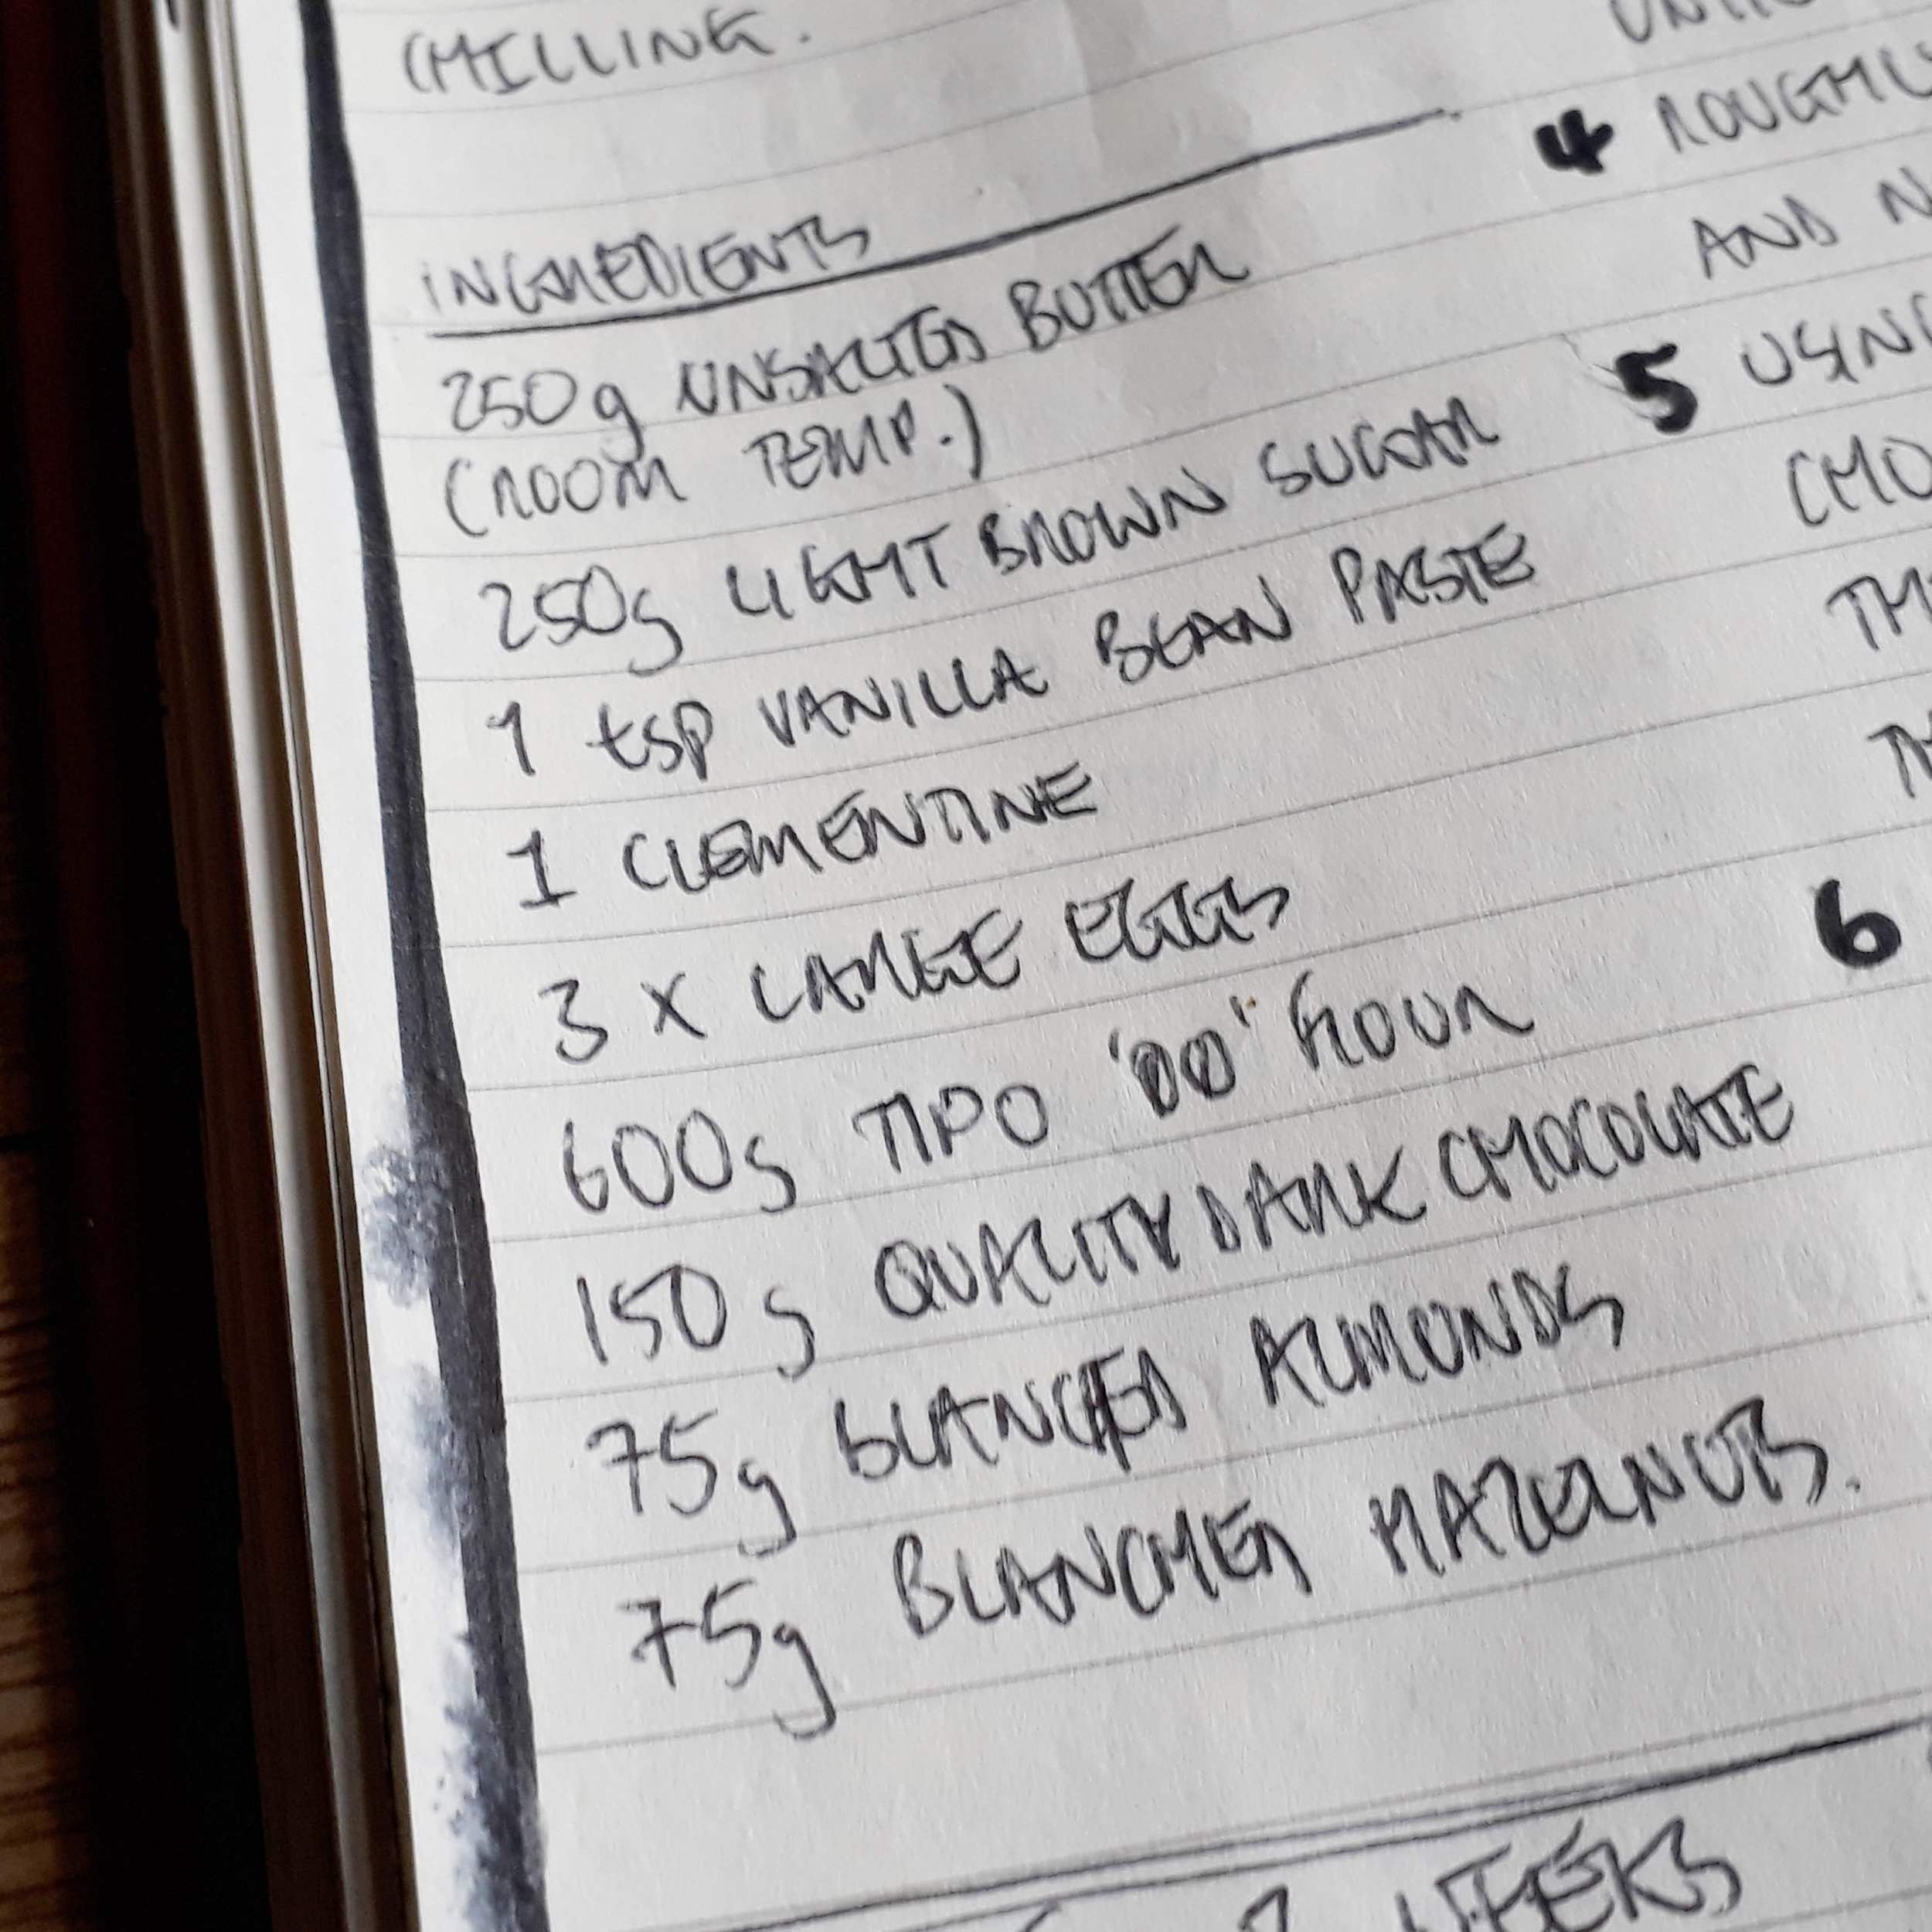 CHILLING.
INGREDIENTS
250g UNSALTED BUTTER
(ROOM TEMP.)
250g LIGHT BROWN SUGAR
1 tsp VANILLA BEAN PASTE
1 CLEMENTINE
3 x LARGE EGGS
600g TIPO '00' FLOUR
150g QUALITY DARK CHOCOLATE
75g BLANCHED ALMONDS
75g BLANCHED HAZELNUTS.
WEEKS
4 ROUGHLY
AND N
5 USING
CHO
TH
6